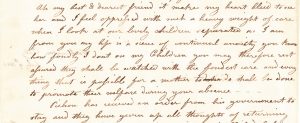 Ah my best & dearest friend it makes my heart bleed to see
her and I feel oppressed with such a heavy weight of care
when I look at our lovely children separated as I am
from you my life is a scene of continual anxiety you know
how fondly I doat on my Children you may therefore rest
assured they shall be watched with the fondest care and every
thing that is possible for a mother to do shall be done
to promote their welfare during your absence
Pichon has received an order from his government to
stay and they have given up all thoughts of returning